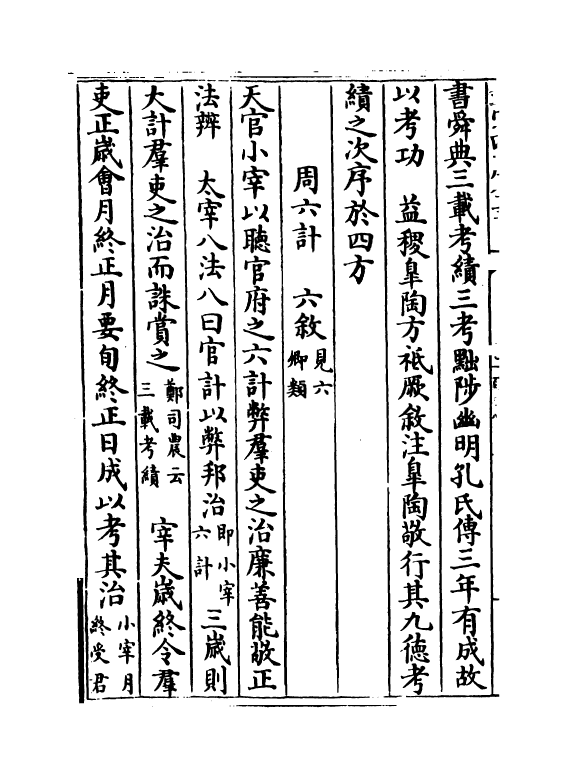 書舜典三載考績三考黜陟幽明孔氏傳三年有成故
以考功　益稷臯陶方祗厥敘注臯陶敬行其九德考
績之次序於四方
周六計　六敘見六卿類
天官小宰以聽官府之六計弊羣吏之治廉善能敬正
法辨　太宰八法八曰官計以弊邦治即小宰六計三歲則
大計羣吏之治而誅賞之鄭司農云三載考績　宰夫歲終令羣
吏正歲會月終正月要旬終正日成以考其治小宰月終受君